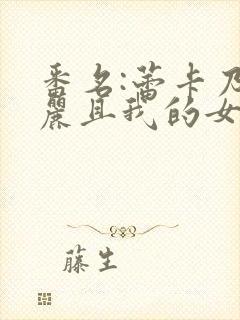 番名:蕾卡乃
麗且我的女
藤生